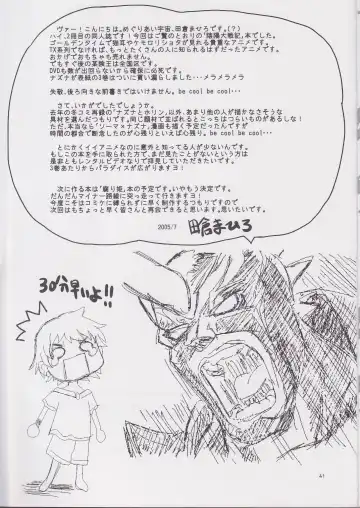 ヴァー!こんにちは。めぐりあい宇宙、田倉まひろです。(?)
ハイ、2冊目の同人誌です!今回はご覧のとおりの「陰陽大戦記」本でした。
ゴールデンタイムで猫耳やケモロリショタが見れる貴重なアニメです。
TX系列でなければ、もっとたくさんの人に知られるはずだったアニメです。
おかげでおもちゃも売れません。
おまけに後番組の某探険王は全国区です。
DVDも数が出回らないから確保に必死です。
ナズナが表紙の3巻はついに買い漏らしました・・・メラメラメラ
失敬、後ろ向きな前書きではいけません。be cool be cool・・・
さて、いかがでしたでしょうか。
去年の冬コミ再録の「マナとホリン」以外、あまり他の人が描かなさそうな
具材を選んだつもりです。同じ題材で並ばれるとこっちはつらいものがあるしな!
ただ、本当なら「ソーマ×ナズナ」漫画も描く予定だったんですが
時間の都合で断念したのが心残りといえば心残り。be cool be cool・・・
とにかくイイアニメなのに意外と知ってる人が少ないんです。
もしこの本を手に取られた方で、まだ見たことがないという方は
是非ともレンタルビデオなりで拝見していただきたいです。
3巻あたりからパラダイスが広がりますヨ!
次に作る本は「巌り姫」本の予定です。いやもう決定です。
だんだんマイナー路線に突っ走って行きますヨ!
今度こそはコミケに縛られずに早く制作するつもりですので
次回はもちょっと早く皆さんと再会できると思います。だいたいです。
2005/7
田倉まひろ
30分早いよ!!
41